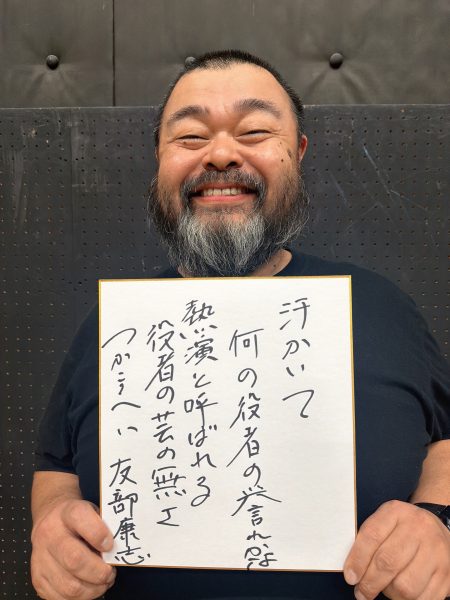 汗かいて
何の役者の誉れかな
熱演と呼ばれる
役者の芸の無さ
つかこうへい 友部康志